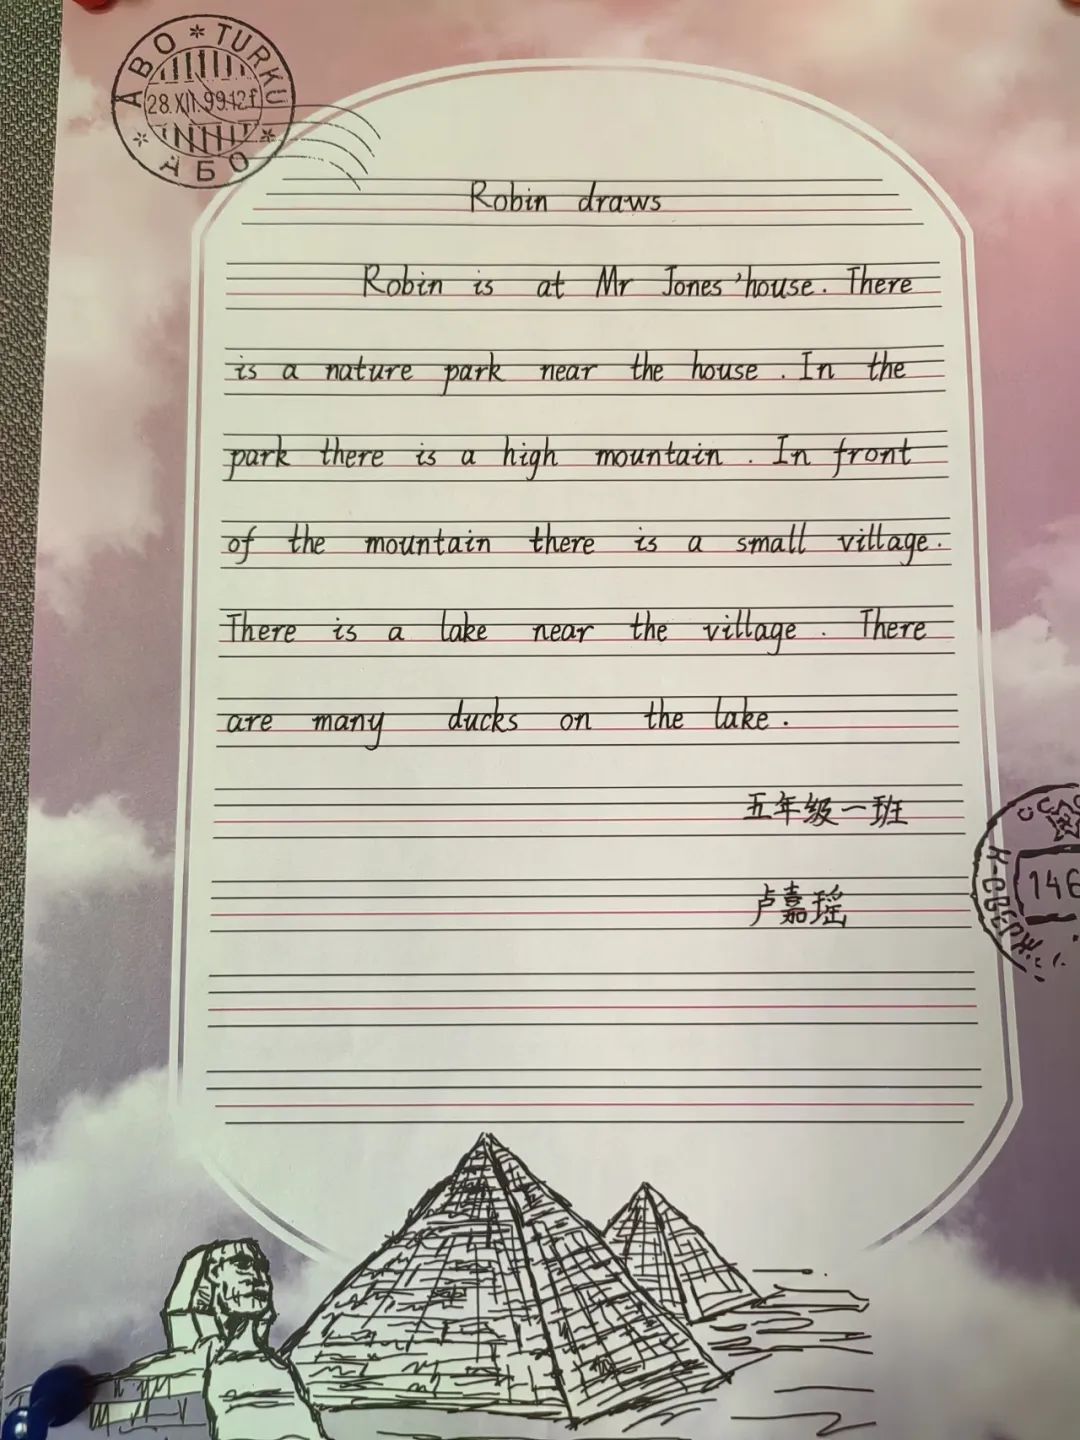 ABO * TURKU
28.XII.99.12f
* АБО *
Robin draws
Robin is at Mr Jones 'house. There
is a nature park near the house . In the
park there is a high mountain . In front
of the mountain there is a small village.
There is a lake near the village . There
are many ducks on the lake .
五年级一班
卢嘉瑶
146